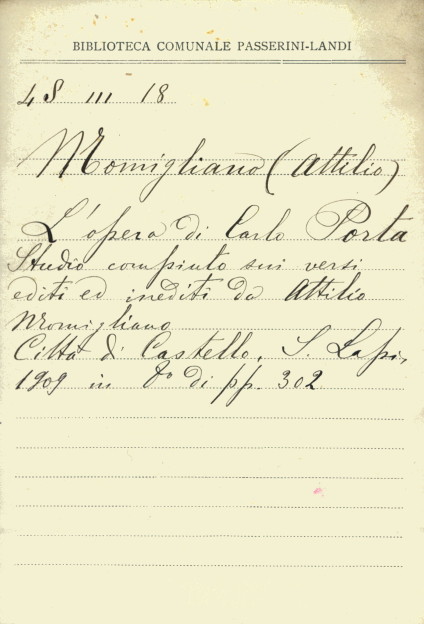 BIBLIOTECA COMUNALE PASSERINI-LANDI
48 III 18
Momigliano (Attilio)
L'opera di Carlo Porta
Studio compiuto sui versi
editi ed inediti da Attilio
Momigliano
Città di Castello, S. Lapi,
1909 in 8º di pp. 302